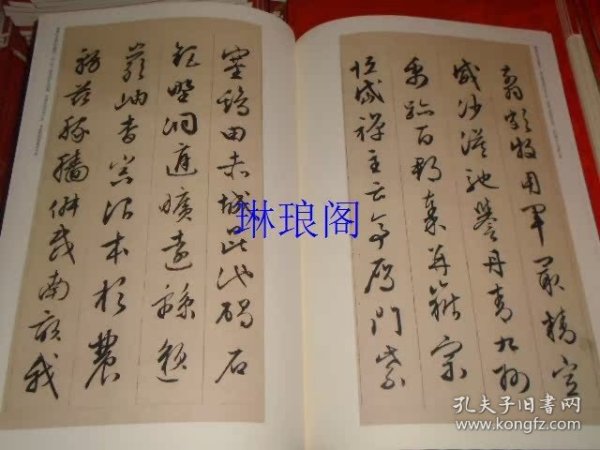 翦頗牧用軍最精宣
威沙漠馳譽丹青九州
禹跡百郡秦并嶽宗
恒岱禪主云亭雁門紫
塞雞田赤城昆池碣石
鉅野洞庭曠遠綿邈
巖岫杳冥治本於農
務茲稼穡俶載南畝我
琳琅阁
孔夫子旧书网
www.kongfz.com